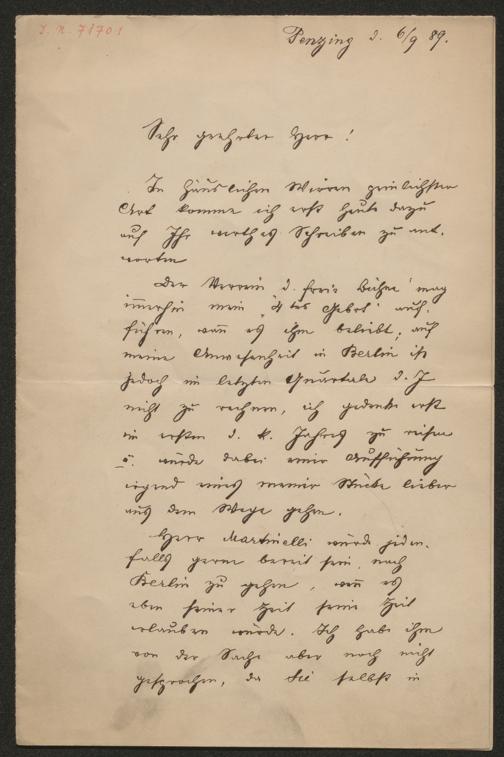 J. N. 71701
Penzing d. 6/9 89.
Sehr geehrter Herr!
In häuslichen Wirren peinlichster
Art komme ich erst heute dazu
auf Ihr werthes Schreiben zu ant-
worten
Der Verein d. freie Bühne' mag
immerhin mein „4tes Gebot' auf-
führen, wañ es ihm beliebt; auf
meine Anwesenheit in Berlin ist
jedoch im letzten Quartale d. J
nicht zu rechnen, ich gedenke erst
im ersten d. k. Jahres zu reisen
u. würde dabei einer Aufführung
irgend eines meiner Stücke lieber
aus dem Wege gehen.
Herr Martinelli würde jeden-
falls gerne bereit sein, nach
Berlin zu gehen, weñ es
eben seiner Zeit seine Zeit
erlauben würde. Ich habe ihm
von der Sache aber noch nicht
gesprochen, da Sie selbst in